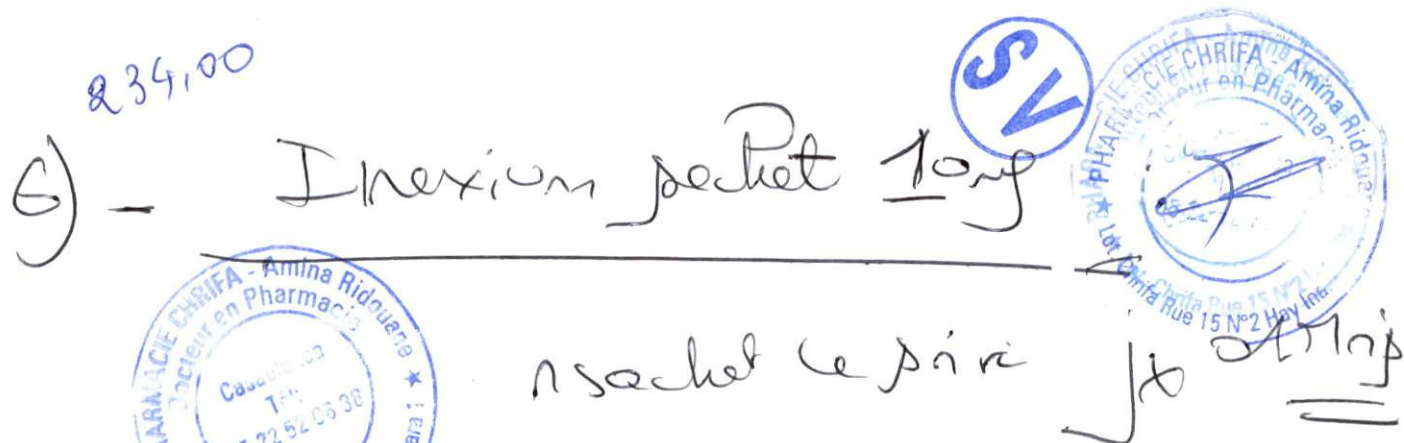 234,00
6) - Inexium sachet 10mg
1 sachet le soir jx
SV
PHARMACIE CHRIFA - Amina Ridouane
Docteur en Pharmacie
Lot. Chrifa Rue 15 N°2 Hay Ina
PHARMACIE CHRIFA - Amina Ridouane ★
Docteur en Pharmacie
Casablanca
Tél:
22 52 06 38